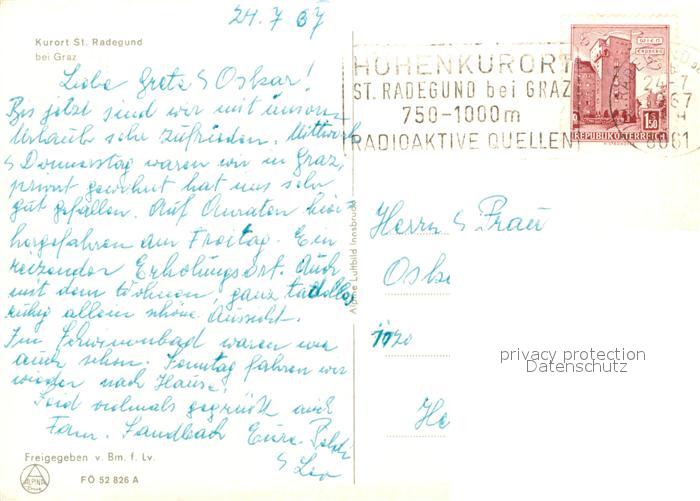 24.7 67
Kurort St. Radegund
bei Graz
Liebe Greta & Oskar!
Bis jetzt sind wir mit unserm
Urlaub sehr zufrieden. Mittwoch
& Donnerstag waren wir in Graz,
privat gewohnt hat uns sehr
gut gefallen. Auf Anraten hier-
hergefahren am Freitag. Ein
reizender Erholungsort. Auch
mit dem Wohnen, ganz tadellos
ruhig allein schöne Aussicht.
Im Schwimmbad waren wir
auch schon. Sonntag fahren wir
wieder nach Hause!
Seid vielmals gegrüßt auch
Fam. Sandbach Eure
& Leo
Freigegeben v. Bm. f. Lv.
ALPINA
FÖ 52 826 A
Alpine Luftbild Innsbruck
HÖHENKURORT
ST. RADEGUND bei GRAZ
750-1000m
RADIOAKTIVE QUELLEN
WIEN
ERDBERG
1.50
REPUBLIK ÖSTERREICH
24.-7
67
8061
Herrn & Frau
Osk
1020
privacy protection
Datenschutz